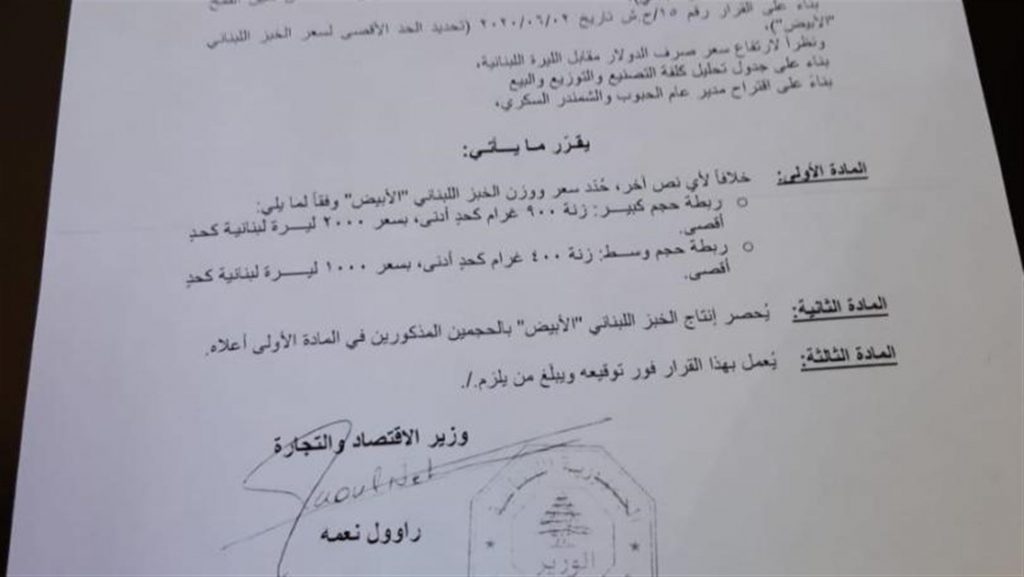 بناء على القرار رقم ١٥/ح.ش تاريخ ٢٠٢٠/٠٦/٠٢ (تحديد الحد الأقصى لسعر الخبز اللبناني
"الأبيض")،
ونظراً لارتفاع سعر صرف الدولار مقابل الليرة اللبنانية،
بناء على جدول تحليل كلفة التصنيع والتوزيع والبيع
بناءً على اقتراح مدير عام الحبوب والشمندر السكري،
يقرّر ما يـــأتـي:
المادة الأولى: خلافاً لأي نص أخر، حُدد سعر ووزن الخبز اللبناني "الأبيض" وفقاً لما يلي:
○ ربطة حجم كبيـر: زنة ٩٠٠ غرام كحدٍ أدنى، بسعر ٢٠٠٠ ليـرة لبنانية كحدٍ
أقصى.
○ ربطة حجم وسـط: زنة ٤٠٠ غرام كحدٍ أدنى، بسعر ١٠٠٠ ليـرة لبنانية كحدٍ
أقصى.
المادة الثانية: يُحصر إنتاج الخبز اللبناني "الأبيض" بالحجمين المذكورين في المادة الأولى أعلاه.
المادة الثالثة: يُعمل بهذا القرار فور توقيعه ويبلغ من يلزم./.
وزير الاقتصاد والتجارة
راوول نعمه
الوزير